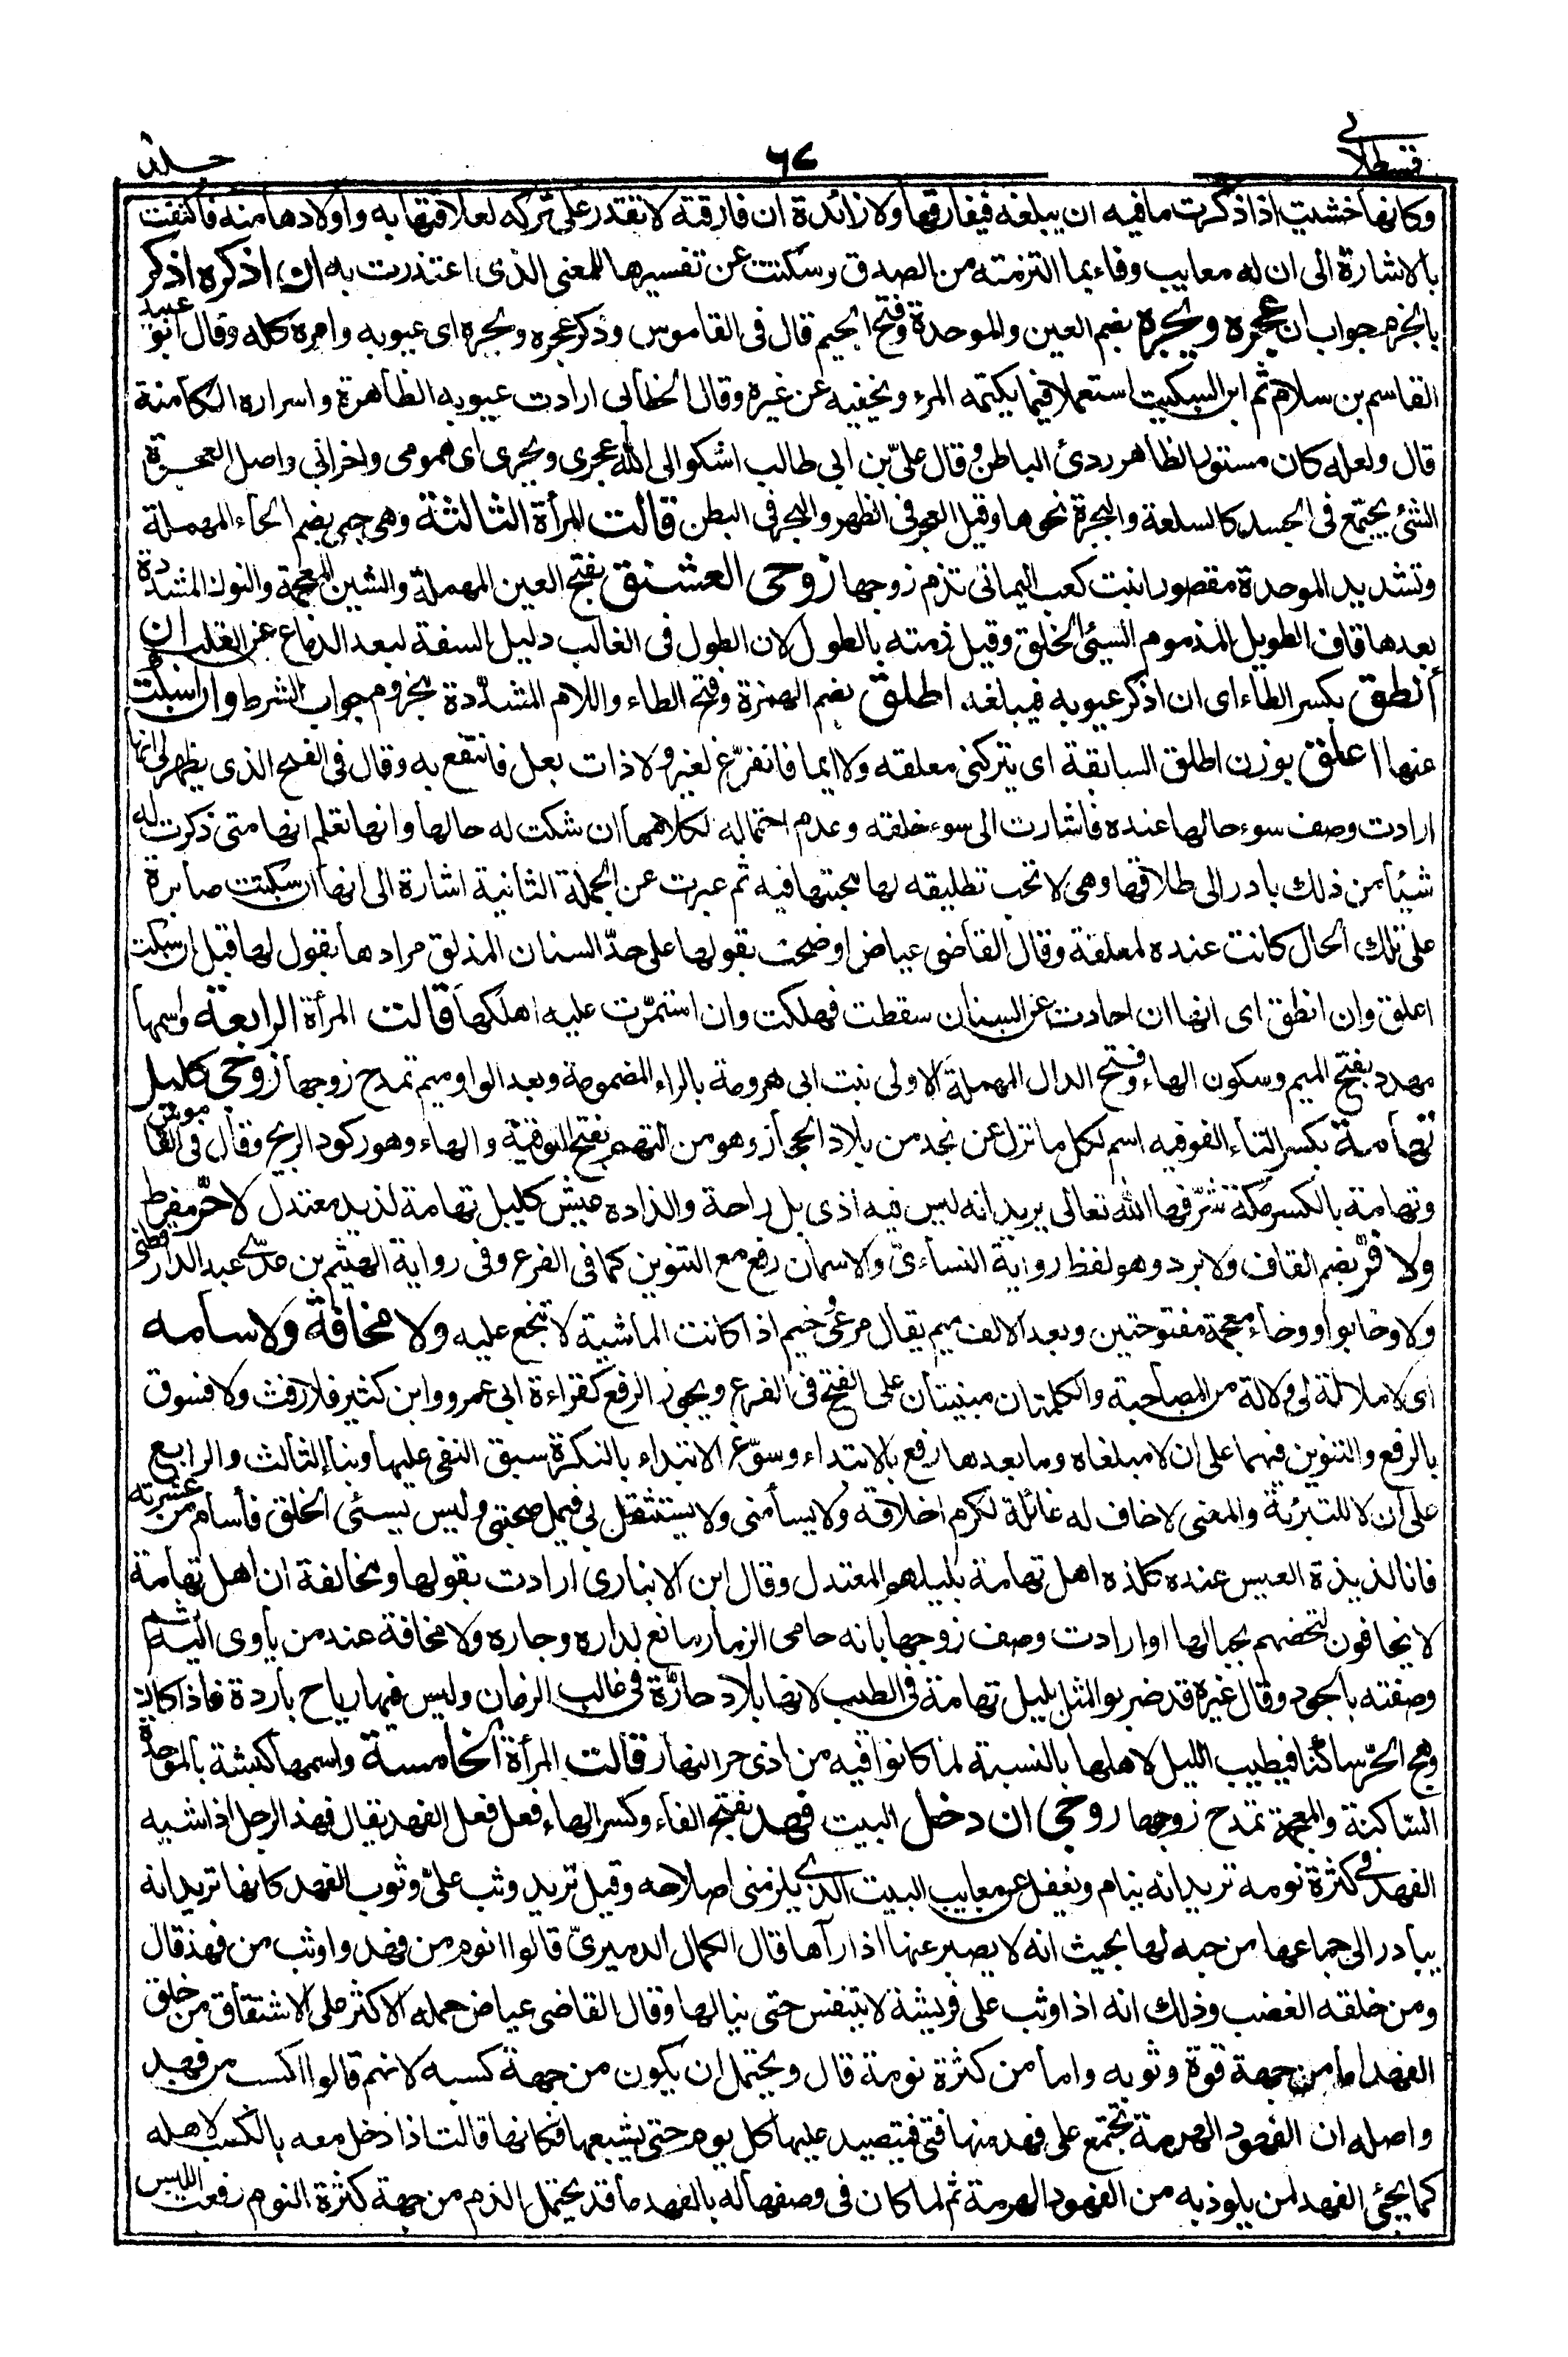 قسطلانى ٦٧
وكانها خشيت اذا ذكرت ما فيه ان يبلغه فيفارقها ولا زائدة ان فارقته لا تقدر على تركه لعلاقتها به واولادها منه فاكتفت
بالاشارة الى ان له معايب وفاء بما التزمته من الصدق وسكتت عن تفسيرها للمعنى الذى اعتذرت به ان اذكره اذكر
بالجزم جواب ان عجره وبجره بضم العين والموحدة وفتح الجيم قال فى القاموس وذكر عجره وبجره اى عيوبه وامره كله وقال ابو عبيد
القاسم بن سلام ثم ابن السكيت استعملا فيما يكتمه المرء ويخفيه عن غيره وقال الخطابى ارادت عيوبه الظاهرة واسراره الكامنة
قال ولعله كان مستور الظاهر ردئ الباطن وقال علىّ بن ابى طالب اشكوا الى الله عجرى وبجرى اى همومى واحزانى واصل العجرة
الشئ يجتمع فى الجسد كالسلعة والبجرة نحوها وقيل العجر فى الظهر والبجر فى البطن قالت المرأة الثالثة وهى حبى بضم الحاء المهملة
وتشديد الموحدة مقصورا بنت كعب اليمانى تذم زوجها زوجى العشنق بفتح العين المهملة والشين المعجمة والنون المشددة
بعدها قاف الطويل المذموم السيئ الخلق وقيل ذمته بالطول لان الطول فى الغالب دليل السفة لبعد الدماغ عن القلب ان
انطق بكسر الطاء اى ان اذكر عيوبه فيبلغه اطلق بضم الهمزة وفتح الطاء واللام المشدّدة مجزوم جواب الشرط وان اسكت
عنها اعلق بوزن اطلق السابقة اى يتركنى معلقه ولا ايما فاتفرّغ لغيره ولا ذات بعل فانتفع به وقال فى الفتح الذى يظهر لى انها
ارادت وصف سوء حالها عنده فاشارت الى سوء خلقه وعدم احتماله لكلامها ان شكت له حالها وانها تعلم انها متى ذكرت له
شيأ من ذلك بادر الى طلاقها وهى لا تحب تطليقه لها لمحبتها فيه ثم عبرت عن الجملة الثانية اشارة الى انها ان سكتت صابرة
على تلك الحال كانت عنده كمعلقة وقال القاضى عياض اوضحت بقولها على حدّ السنان المذلق مرادها بقولها قبل ان اسكت
اعلق وان انطق اى انها ان احادت عن السنان سقطت فهلكت وان استمرّت عليه اهلكها قالت المرأة الرابعة واسمها
مهدد بفتح الميم وسكون الهاء وفتح الدال المهملة الاولى بنت ابى هرومة بالراء المضمومة وبعد الواو ميم تمدح زوجها زوجى كليل
تهامة بكسر التاء الفوقيه اسم لكل ما نزل عن نجد من بلاد الحجاز وهو من التهم بفتح الفوقية والهاء وهو ركود الريح وقال فى القاموس
وتهامة بالكسر مكة شرّفها الله تعالى يريد انه ليس فيه اذى بل راحة ولذاذه عيش كليل تهامة لذيد معتدل لا حرّ مفرط
ولا قرّ بضم القاف ولا برد وهو لفظ رواية النساءىّ والاسمان رفع مع التنوين كما فى الفرع وفى رواية الهيثم بن عدّى عند الدارقطنى
ولا وخا بواو وخاء معجمة مفتوحتين وبعد الالف ميم يقال مرعًى خيم اذا كانت الماشية لا تنجع عليه ولا مخافة ولا سآمه
اى لا ملالة لى ولا لة من المصاحبة والكلمتان مبنيتان على الفتح فى الفرع ويجوز الرفع كقراءة ابى عمرو وابن كثير فلا رفث ولا فسوق
بالرفع والتنوين فيهما على ان لا مبلغاه وما بعدها رفع بالابتداء وسوّغ الابتداء بالنكرة سبق النفى عليها وبناء الثالث والرابع
على ان لا للتبرئة والمعنى لا خاف له غائلة لكرم اخلاقه ولا يسأمنى ولا يستثقل بى فيمل صحبتى وليس بسيئى الخلق فأسأم من عشرته
فانا لذيذة العيس عنده كلذه اهل تهامة بليلهم المعتدل وقال ابن الانبارى ارادت بقولها ولا مخالفة ان اهل تهامة
لا يخافون لتحضنهم بجبالها او ارادت وصف زوجها بانه حامى الزمار مانع لداره وجاره ولا مخافة عند من يأوى اليه ثم
وصفته بالجود وقال غيره قد ضربوا المثل بليل تهامة فى الطيب لانها بلاد حارّة فى غالب الزمان وليس فيها رياح باردة فاذا كان
وهج الحرّ ساكنا فيطيب الليل لاهلها بالنسبة لما كانوا فيه من اذى حر النهار قالت المرأة الخامسة واسمها كبشة بالموحدة
السّاكنة والمعجمة تمدح زوجها زوجى ان دخل البيت فهد بفتح الفاء وكسر الهاء فعل فعل الفهد يقال فهد الرجل اذا شبه
الفهد فى كثرة نومه تريد انه ينام ويغفل عن معايب البيت الذى يلزمنى اصلاحه وقيل تريد وثب علىّ وثوب الفهد كانها تريد انه
يبادر الى جماعها من حبه لها بحيث انه لا يصبر عنها اذا رآها قال الكمال الدميرىّ قالوا انوم من فهد واوثب من فهد قال
ومن خلقه الغضب وذلك انه اذا وثب على فريشة لا يتنفس حتى ينالها وقال القاضى عياض حمله الاكثر على الاشتقاق من خلق
الفهد اما من جهة قوة وثوبه واما من كثرة نومة قال ويحتمل ان يكون من جهة كسبه لانهم قالوا اكسب من فهد
واصله ان الفهود الهرمة تجتمع على فهد منها فتى فيتصيد عليها كل يوم حتى يشبعها فكانها قالت اذا دخل معه بالكسب لاهله
كما يجئ الفهد لمن يلوذ به من الفهود الهرمة ثم لما كان فى وصفها له بالفهد ما قد يحتمل الذم من جهة كثرة النوم رفعت اللبس